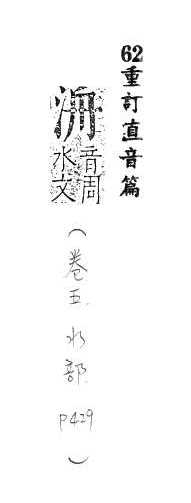 62重訂直音篇
洀
音周
水文
(卷五.水部.P429)